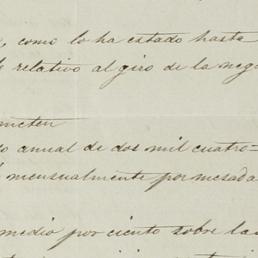 , como lo ha estado hasta
relativo al giro de la nego
meten
o anual de dos mil cuatro-
mensualmente por mesada
medio por ciento sobre la